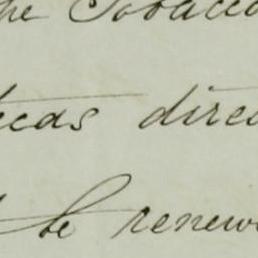 the Tobacco
ecas direc
be renew